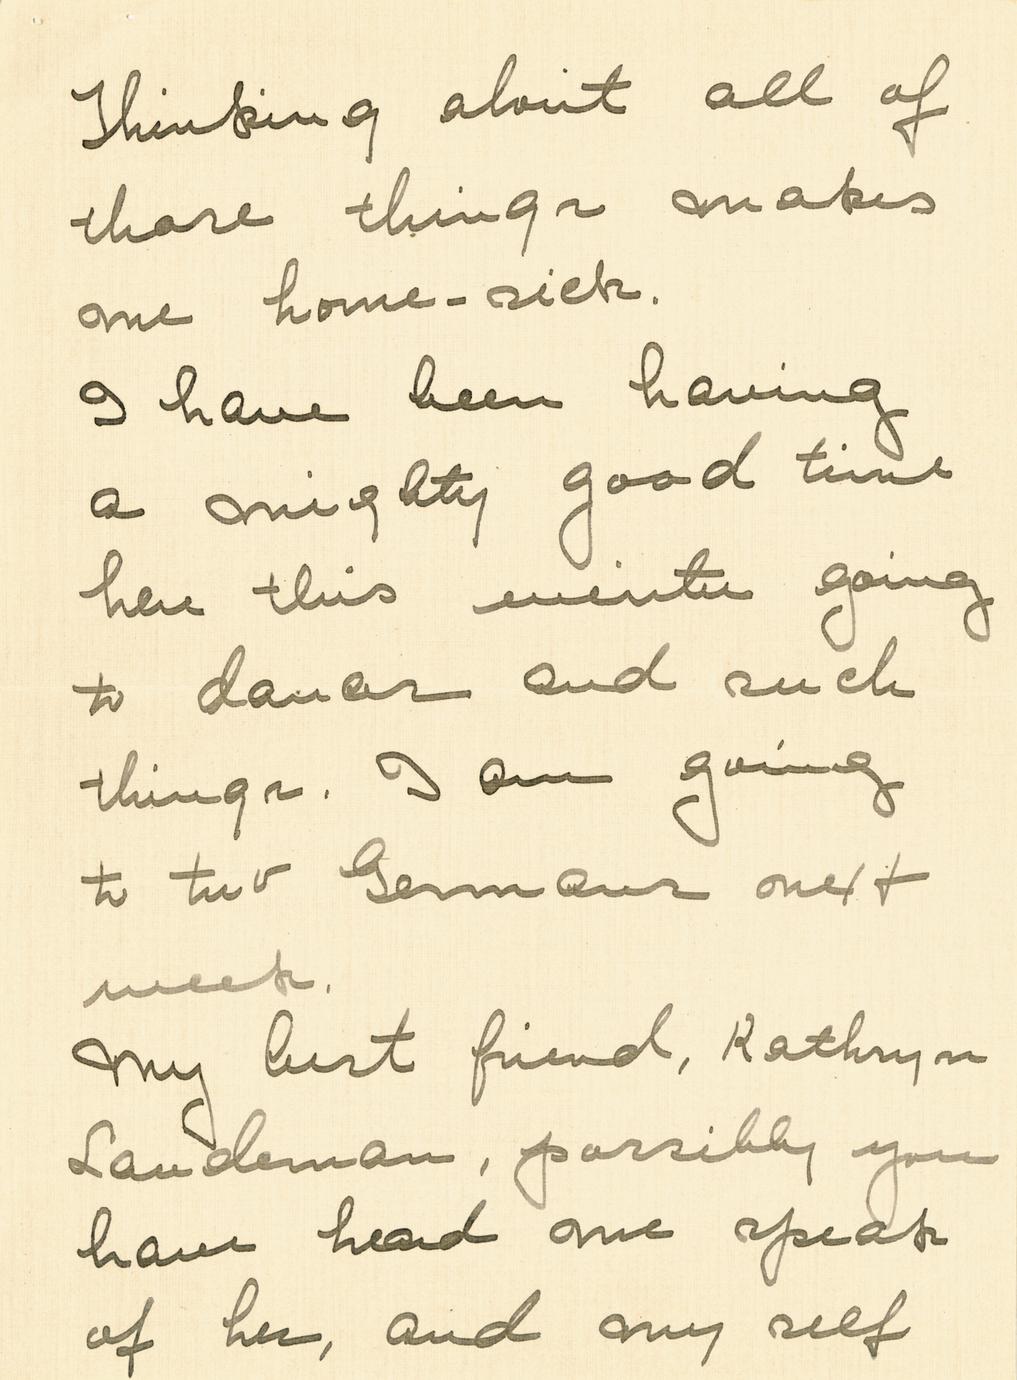 Thinking about all of
those things makes
me home-sick.
I have been having
a mighty good time
here this winter going
to dances and such
things. I am going
to two Germans next
week.
My best friend, Kathryn
Landeman, possibly you
have heard me speak
of her, and my self